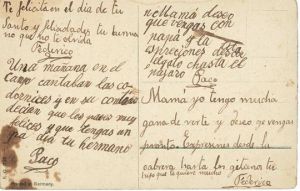 Te felicita en el dia de tu
Santo y felicidades tu hermano
que no te olvida
Federico
Una mañana en el
campo cantaban las co-
dornices y en su
decian que los pases muy
felices y que tengas un
dia tu hermano
Paco
Mamá deseo
que vengas con
papá y la
expresiones
hasta el
pajaro
Paco
Mama yo tengo mucha
gana de verte y deseo que vengas
pronto. Expresiones desde la
cabrera hasta los jitanos tu
hijo que te quiere mucho
Federico
Germany